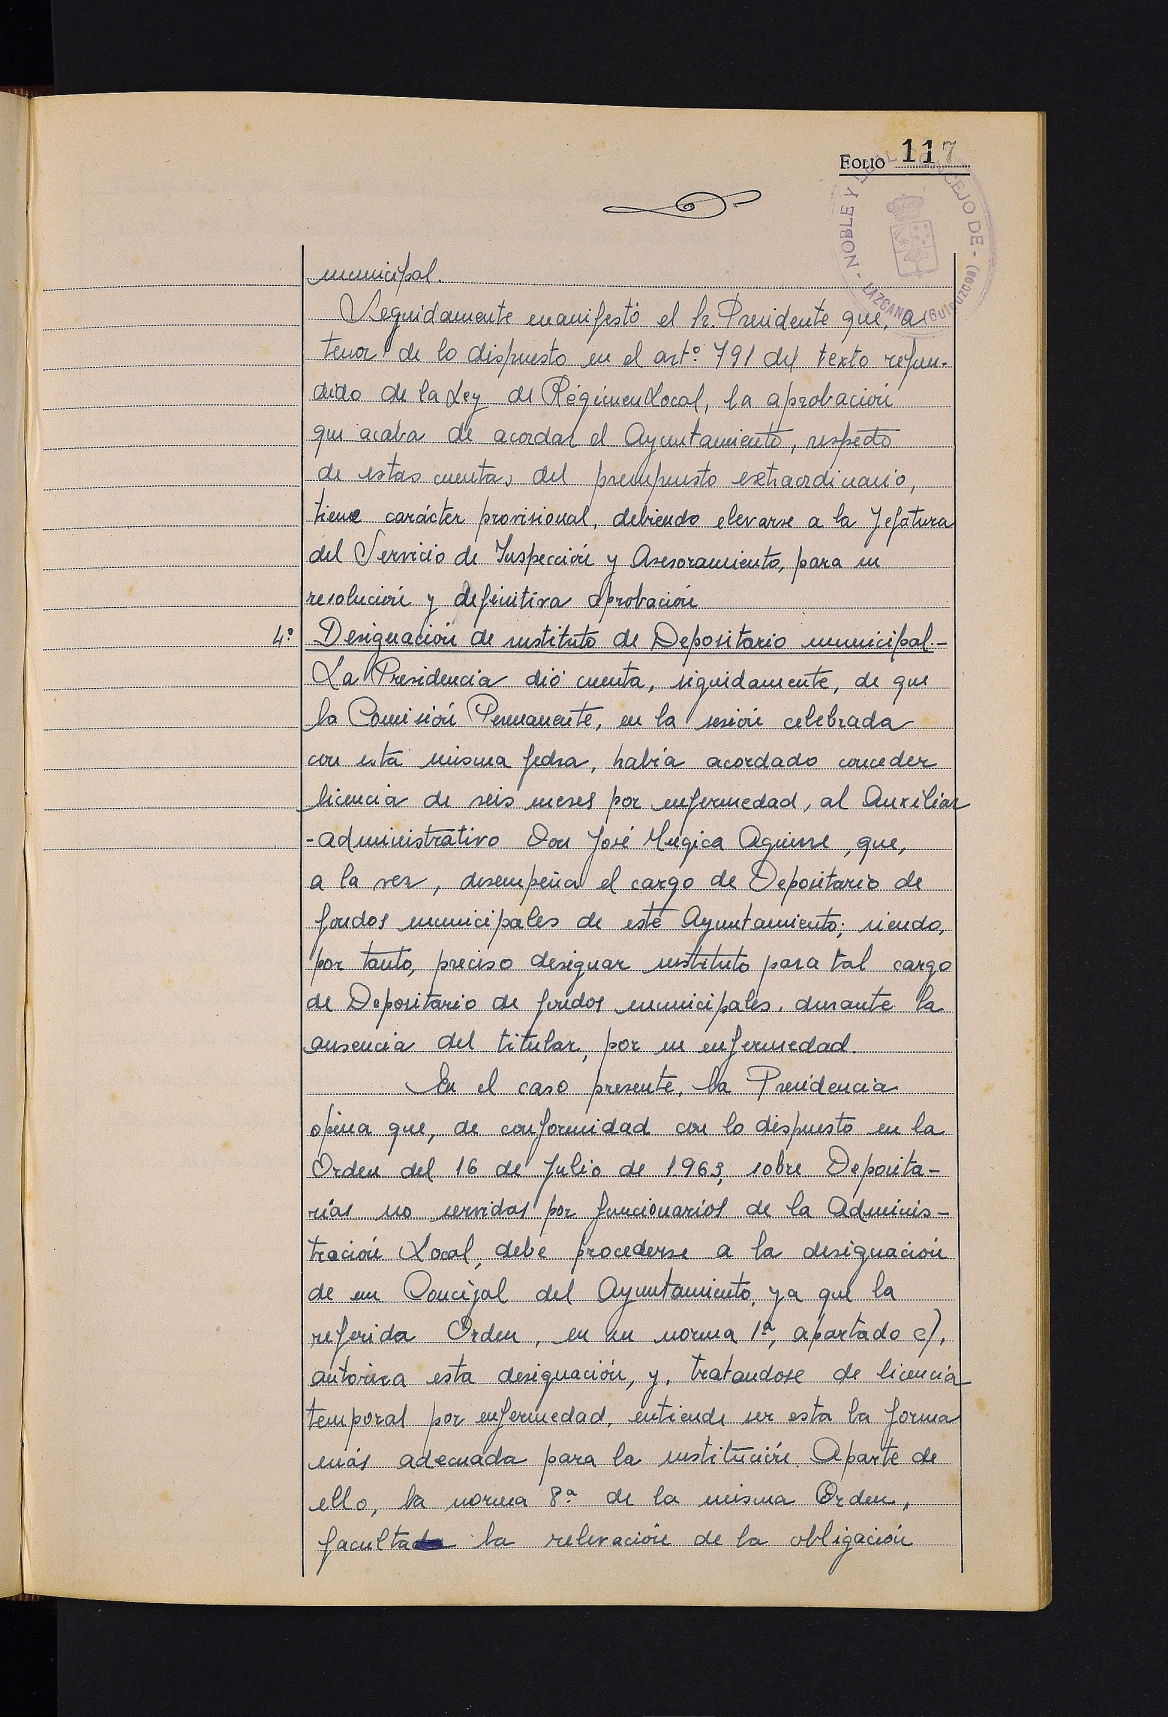 FOLIO 117
NOBLE Y LEAL CONCEJO DE - LAZCANO (Guipuzcoa) -
municipal.
Seguidamente manifestó el Sr. Presidente que, a
tenor de lo dispuesto en el artº 791 del texto refun-
dido de la Ley de Régimen Local, la aprobación
que acaba de acordar el Ayuntamiento, respecto
de estas cuentas del presupuesto extraordinario,
tiene carácter provisional, debiendo elevarse a la Jefatura
del Servicio de Inspección y Asesoramiento, para su
resolución y definitiva aprobación
4º Designación de sustituto de Depositario municipal.-
La Presidencia dió cuenta, siguidamente, de que
la Comisión Permanente, en la sesión celebrada
con esta misma fecha, había acordado conceder
licencia de seis meses por enfermedad, al Auxiliar
-administrativo Don José Mugica Aguirre, que,
a la vez, desempeña el cargo de Depositario de
fondos municipales de este Ayuntamiento; siendo,
por tanto, preciso designar sustituto para tal cargo
de Depositario de fondos municipales, durante la
ausencia del titular, por su enfermedad.
En el caso presente, la Presidencia
opina que, de conformidad con lo dispuesto en la
Orden del 16 de Julio de 1963, sobre Deposita-
rías no servidas por funcionarios de la Adminis-
tración Local, debe procederse a la designación
de un Concejal del Ayuntamiento, ya que la
referida Orden, en su norma 1ª, apartado c),
autoriza esta designación, y, tratandose de licencia
temporal por enfermedad, entiende ser esta la forma
más adecuada para la sustitución Aparte de
ello, la norma 8ª de la misma Orden,
faculta la relevación de la obligación